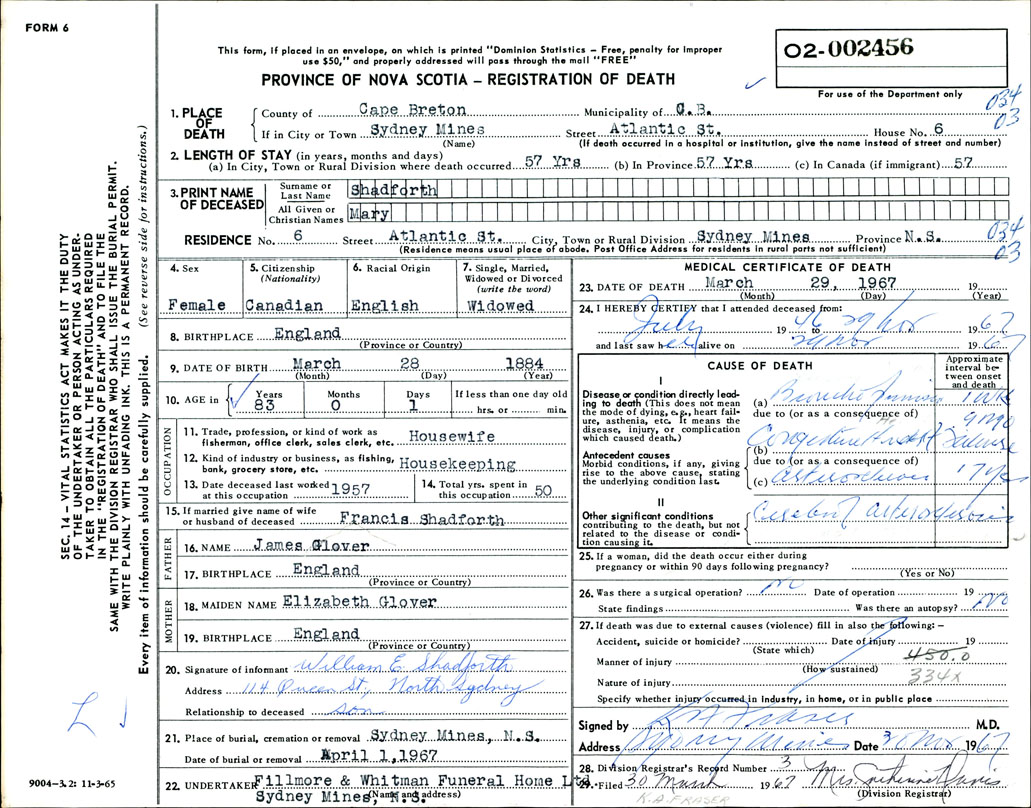 FORM 6
This form, if placed in an envelope, on which is printed "Dominion Statistics – Free, penalty for improper
use $50," and properly addressed will pass through the mail "FREE"
O2-002456
For use of the Department only
PROVINCE OF NOVA SCOTIA – REGISTRATION OF DEATH
034
03
1. PLACE OF DEATH
County of Cape Breton Municipality of C.B.
If in City or Town Sydney Mines Street Atlantic St. House No. 6
(Name) (If death occurred in a hospital or institution, give the name instead of street and number)
2. LENGTH OF STAY (in years, months and days)
(a) In City, Town or Rural Division where death occurred 57 Yrs (b) In Province 57 Yrs (c) In Canada (if immigrant) 57
3. PRINT NAME OF DECEASED
Surname or Last Name Shadforth
All Given or Christian Names Mary
RESIDENCE No. 6 Street Atlantic St. City, Town or Rural Division Sydney Mines Province N.S.
(Residence means usual place of abode. Post Office Address for residents in rural parts not sufficient)
034
03
4. Sex
Female
5. Citizenship
(Nationality)
Canadian
6. Racial Origin
English
7. Single, Married,
Widowed or Divorced
(write the word)
Widowed
8. BIRTHPLACE England
(Province or Country)
9. DATE OF BIRTH March 28 1884
(Month) (Day) (Year)
10. AGE in
Years Months Days If less than one day old
83 0 1 hrs. or min.
OCCUPATION
11. Trade, profession, or kind of work as
fisherman, office clerk, sales clerk, etc. Housewife
12. Kind of industry or business, as fishing,
bank, grocery store, etc. Housekeeping
13. Date deceased last worked
at this occupation 1957
14. Total yrs. spent in
this occupation 50
15. If married give name of wife
or husband of deceased Francis Shadforth
FATHER
16. NAME James Glover
17. BIRTHPLACE England
(Province or Country)
MOTHER
18. MAIDEN NAME Elizabeth Glover
19. BIRTHPLACE England
(Province or Country)
20. Signature of informant William E. Shadforth
Address 114 Queen St., North Sydney
Relationship to deceased son
21. Place of burial, cremation or removal Sydney Mines, N.S.
Date of burial or removal April 1,1967
22. UNDERTAKER Fillmore & Whitman Funeral Home Ltd.
(Name and address)
Sydney Mines, N.S.
MEDICAL CERTIFICATE OF DEATH
23. DATE OF DEATH March 29, 1967 19
(Month) (Day) (Year)
24. I HEREBY CERTIFY that I attended deceased from:
July 19 46 to 29 1967
and last saw h er alive on 29 1967
CAUSE OF DEATH
Approximate
interval be-
tween onset
and death
I
Disease or condition directly lead-
ing to death (This does not mean
the mode of dying, e.g., heart fail-
ure, asthenia, etc. It means the
disease, injury, or complication
which caused death.)
(a) 1 wk
due to (or as a consequence of)
Congestive Heart Failure
(b)
Antecedent causes
Morbid conditions, if any, giving
rise to the above cause, stating
the underlying condition last.
due to (or as a consequence of)
(c)
II
Other significant conditions
contributing to the death, but not
related to the disease or condi-
tion causing it.
Cerebral
25. If a woman, did the death occur either during
pregnancy or within 90 days following pregnancy?
(Yes or No)
26. Was there a surgical operation? no Date of operation 19
State findings Was there an autopsy? no
27. If death was due to external causes (violence) fill in also the following: –
Accident, suicide or homicide? Date of injury 19
(State which)
Manner of injury 450.0
(How sustained)
Nature of injury 334x
Specify whether injury occurred in industry, in home, or in public place
Signed by M.D.
Address Sydney Mines Date 30 1967
28. Division Registrar's Record Number 3
29. Filed 30 March 1967 Mrs.
(Division Registrar)
K.A. FRASER
SEC. 14 – VITAL STATISTICS ACT MAKES IT THE DUTY
OF THE UNDERTAKER OR PERSON ACTING AS UNDER-
TAKER TO OBTAIN ALL THE PARTICULARS REQUIRED
IN THE "REGISTRATION OF DEATH" AND TO FILE THE
SAME WITH THE DIVISION REGISTRAR WHO SHALL ISSUE THE BURIAL PERMIT.
WRITE PLAINLY WITH UNFADING INK. THIS IS A PERMANENT RECORD.
Every item of information should be carefully supplied. (See reverse side for instructions.)
9004–3.2: 11-3-65